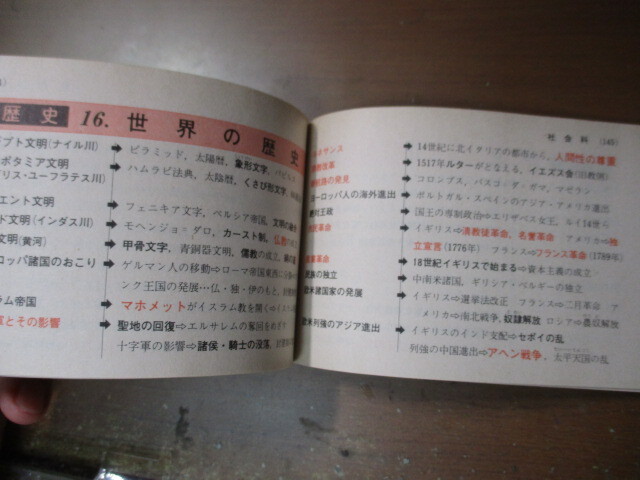 歴史 16. 世界の歴史
プト文明(ナイル川) ➡ ピラミッド，太陽暦，象形文字，
ポタミア文明 ➡ ハムラビ法典，太陰暦，くさび形文字，
リス・ユーフラテス川)
エント文明 ➡ フェニキア文字，ペルシア帝国，文明の
ド文明(インダス川) ➡ モヘンジョ・ダロ，カースト制，仏教
文明(黄河) ➡ 甲骨文字，青銅器文明，儒教の成立，
ロッパ諸国のおこり ➡ ゲルマン人の移動⇨ローマ帝国東西に
ンク王国の発展…仏・独・伊のもと，
ラム帝国 ➡ マホメットがイスラム教を開く⇨
とその影響 ➡ 聖地の回復⇨エルサレムの奪回をめざす
十字軍の影響⇨諸侯・騎士の没落，
社会科 (145)
ネサンス ➡ 14世紀に北イタリアの都市から，人間性の尊重
教改革 ➡ 1517年ルターがとなえる，イエズス会(旧教側)
航路の発見 ➡ コロンブス，バスコ・ダ・ガマ，マゼラン
ーロッパ人の海外進出 ➡ ポルトガル・スペインのアジア・アメリカ進出
対王政 ➡ 国王の専制政治⇨エリザベス女王，ルイ14世ら
民革命 ➡ イギリス⇨清教徒革命，名誉革命 アメリカ⇨独
立宣言(1776年) フランス⇨フランス革命(1789年)
業革命 ➡ 18世紀イギリスで始まる⇨資本主義の成立
民族の独立 ➡ 中南米諸国，ギリシア・ベルギーの独立
欧米諸国家の発展 ➡ イギリス⇨選挙法改正 フランス⇨二月革命 ア
メリカ⇨南北戦争，奴隷解放 ロシア⇨農奴解放
欧米列強のアジア進出 ➡ イギリスのインド支配⇨セポイの乱
列強の中国進出⇨アヘン戦争，太平天国の乱